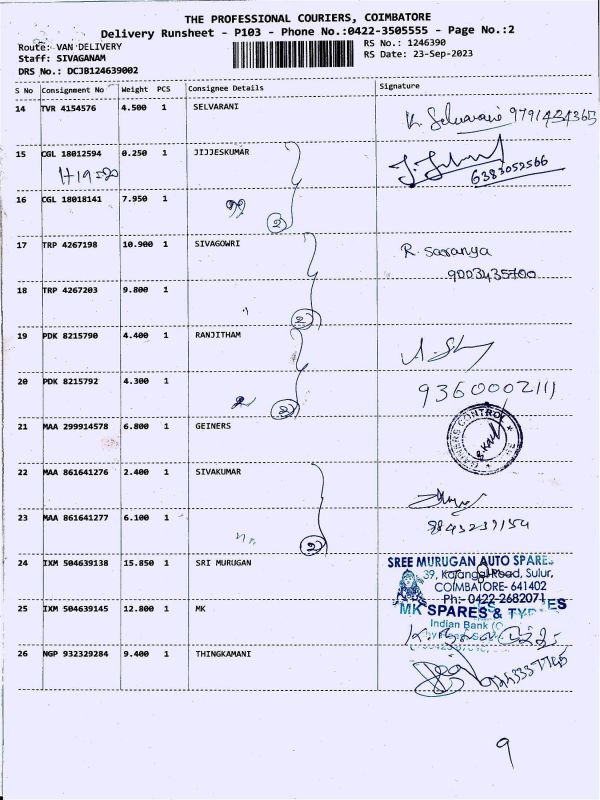 THE PROFESSIONAL COURIERS, COIMBATORE
Delivery Runsheet - P103 - Phone No.:0422-3505555 - Page No.:2
Route: VAN DELIVERY RS No.: 1246390
Staff: SIVAGANAM RS Date: 23-Sep-2023
DRS No.: DCJB124639002
S No Consignment No Weight PCS Consignee Details Signature
14 TVR 4154576 4.500 1 SELVARANI
K. Selvarani 9791424365
15 CGL 18012594 0.250 1 JIJJESKUMAR
6383052566
16 CGL 18018141 7.950 1
2
17 TRP 4267198 10.900 1 SIVAGOWRI R. Saranya
9003435700
18 TRP 4267203 9.800 1
2
19 PDK 8215790 4.400 1 RANJITHAM
20 PDK 8215792 4.300 1 9360002111
2
21 MAA 299914578 6.800 1 GEINERS
22 MAA 861641276 2.400 1 SIVAKUMAR
23 MAA 861641277 6.100 1
2
24 IXM 504639138 15.850 1 SRI MURUGAN
SREE MURUGAN AUTO SPARES
39, Road, Sulur,
COIMBATORE- 641402
Ph:- 0422-2682071
25 IXM 504639145 12.800 1 MK
MK SPARES &
Indian Bank
26 NGP 932329284 9.400 1 THINGKAMANI
9